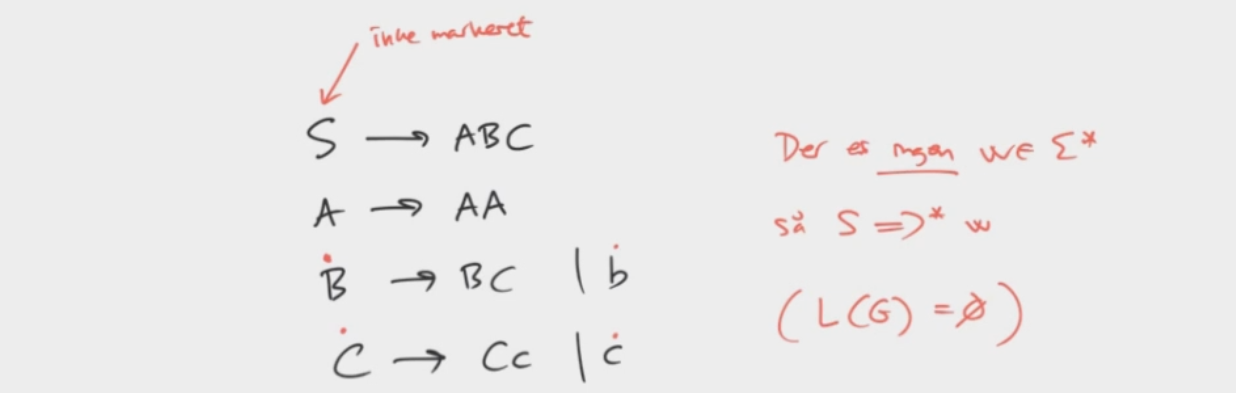 ikke markeret
S → ABC
A → AA
B → BC | b
C → Cc | c
Der er ingen w ∈ Σ*
så S ⇒* w
(L(G) = ∅)